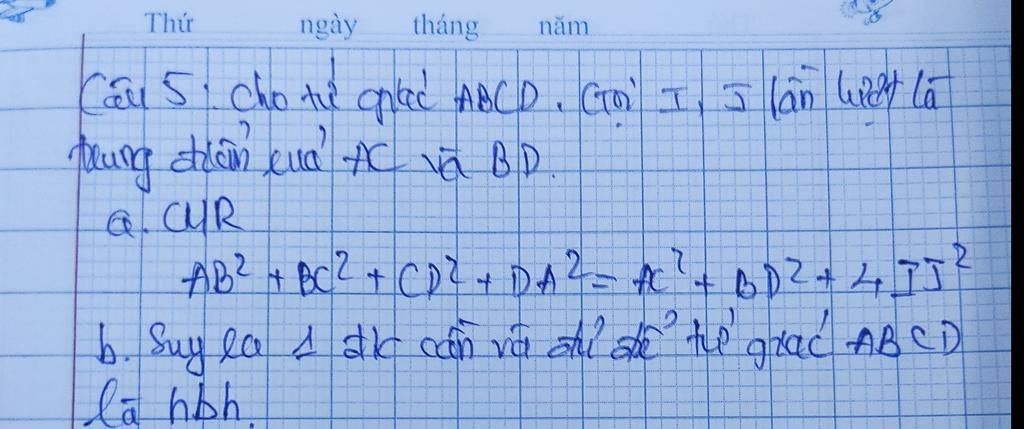 Thứ ngày tháng năm
Câu 5: Cho tứ giác ABCD. Gọi I, J lần lượt là
trung điểm của AC và BD.
a. CMR
AB² + BC² + CD² + DA² = AC² + BD² + 4IJ²
b. Suy ra 1 đk cần và đủ để tứ giác ABCD
là hbh.